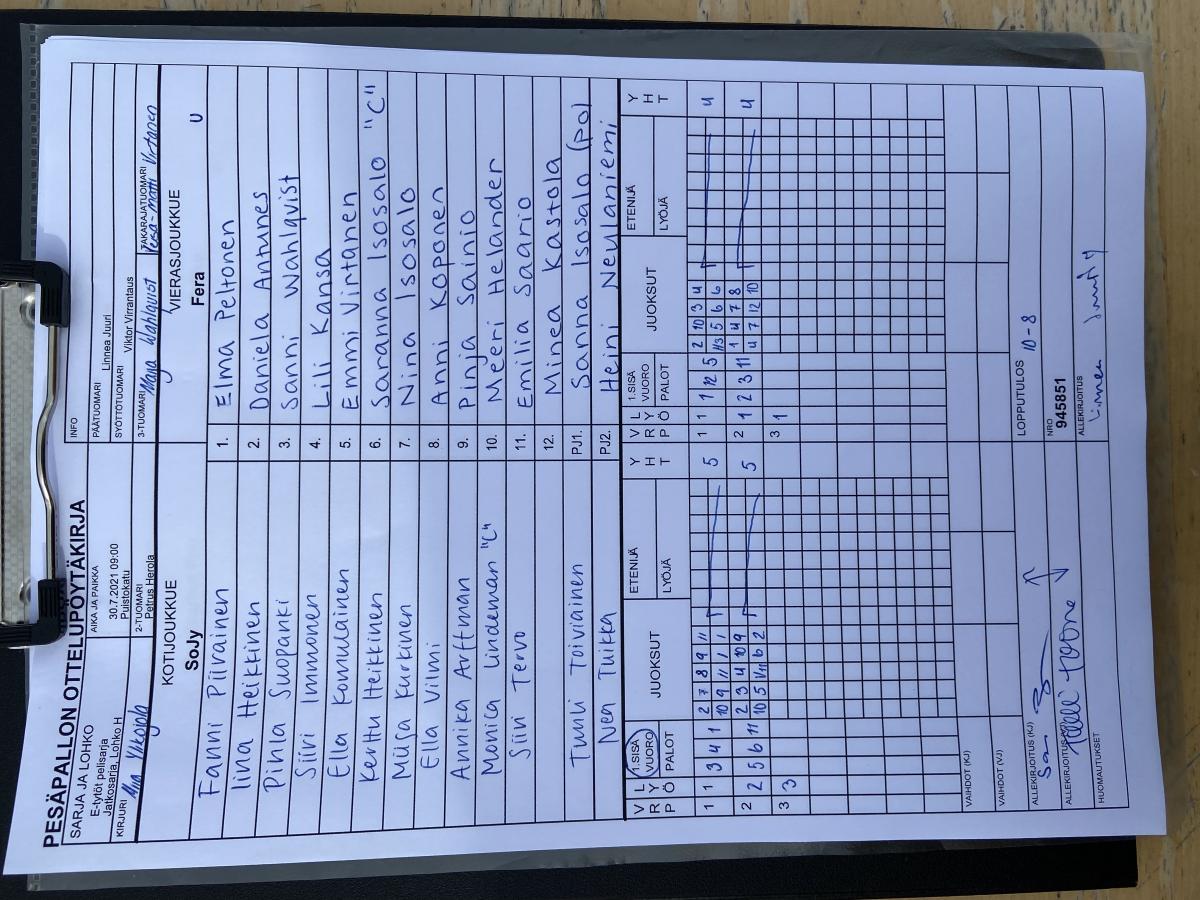 PESÄPALLON OTTELUPÖYTÄKIRJA
SARJA JA LOHKO
E-tytöt pelisarja
Jatkosarja, Lohko H
AIKA JA PAIKKA
30.7.2021 09:00
Puistokatu
INFO
PÄÄTUOMARI
Linnea Juuri
SYÖTTÖTUOMARI
Viktor Virrantaus
KIRJURI
2-TUOMARI
Petrus Herola
3-TUOMARI Mana Wahlquist
TAKARAJATUOMARI
Vesa-Matti Virtanen
KOTIJOUKKUE
VIERASJOUKKUE
SoJy
Fera U
Fanni Piirainen 1. Elma Peltonen
Iina Heikkinen 2. Daniela Antunes
Pinla Suopanki 3. Sanni Wahlqvist
Siiri Immonen 4. Lili Kansa
Ella Konnulainen 5. Emmi Virtanen
Kerttu Heikkinen 6. Saranna Isosalo "C"
Miisa Kurkinen 7. Nina Isosalo
Ella Vilmi 8. Anni Koponen
Annika Arffman 9. Pinja Sainio
Monica Lindeman "C" 10. Meeri Helander
Siiri Tervo 11. Emilia Saario
12. Minea Kastola
Tuuli Toiviainen PJ1. Sanna Isosalo (po)
Nea Tuikka PJ2. Heini Neulaniemi
V R P L Y Ö 1.SISÄ VUORO PALOT JUOKSUT ETENIJÄ LYÖJÄ Y H T V R P L Y Ö 1.SISÄ VUORO PALOT JUOKSUT ETENIJÄ LYÖJÄ Y H T
2 7 8 9 11 2 10 3 4
1 1 3 4 1 10 9 11 1 1 5 1 1 1 12 5 11/3 5 6 6 4
2 3 4 10 9 1 4 7 8
2 2 5 6 11 10 5 1/11 6 2 5 2 1 2 3 11 4 7 12 10 4
3 3 3 1
VAIHDOT (KJ)
VAIHDOT (VJ)
ALLEKIRJOITUS (KJ)
LOPPUTULOS 10-8
NRO
945851
ALLEKIRJOITUS
HUOMAUTUKSET
ALLEKIRJOITUS